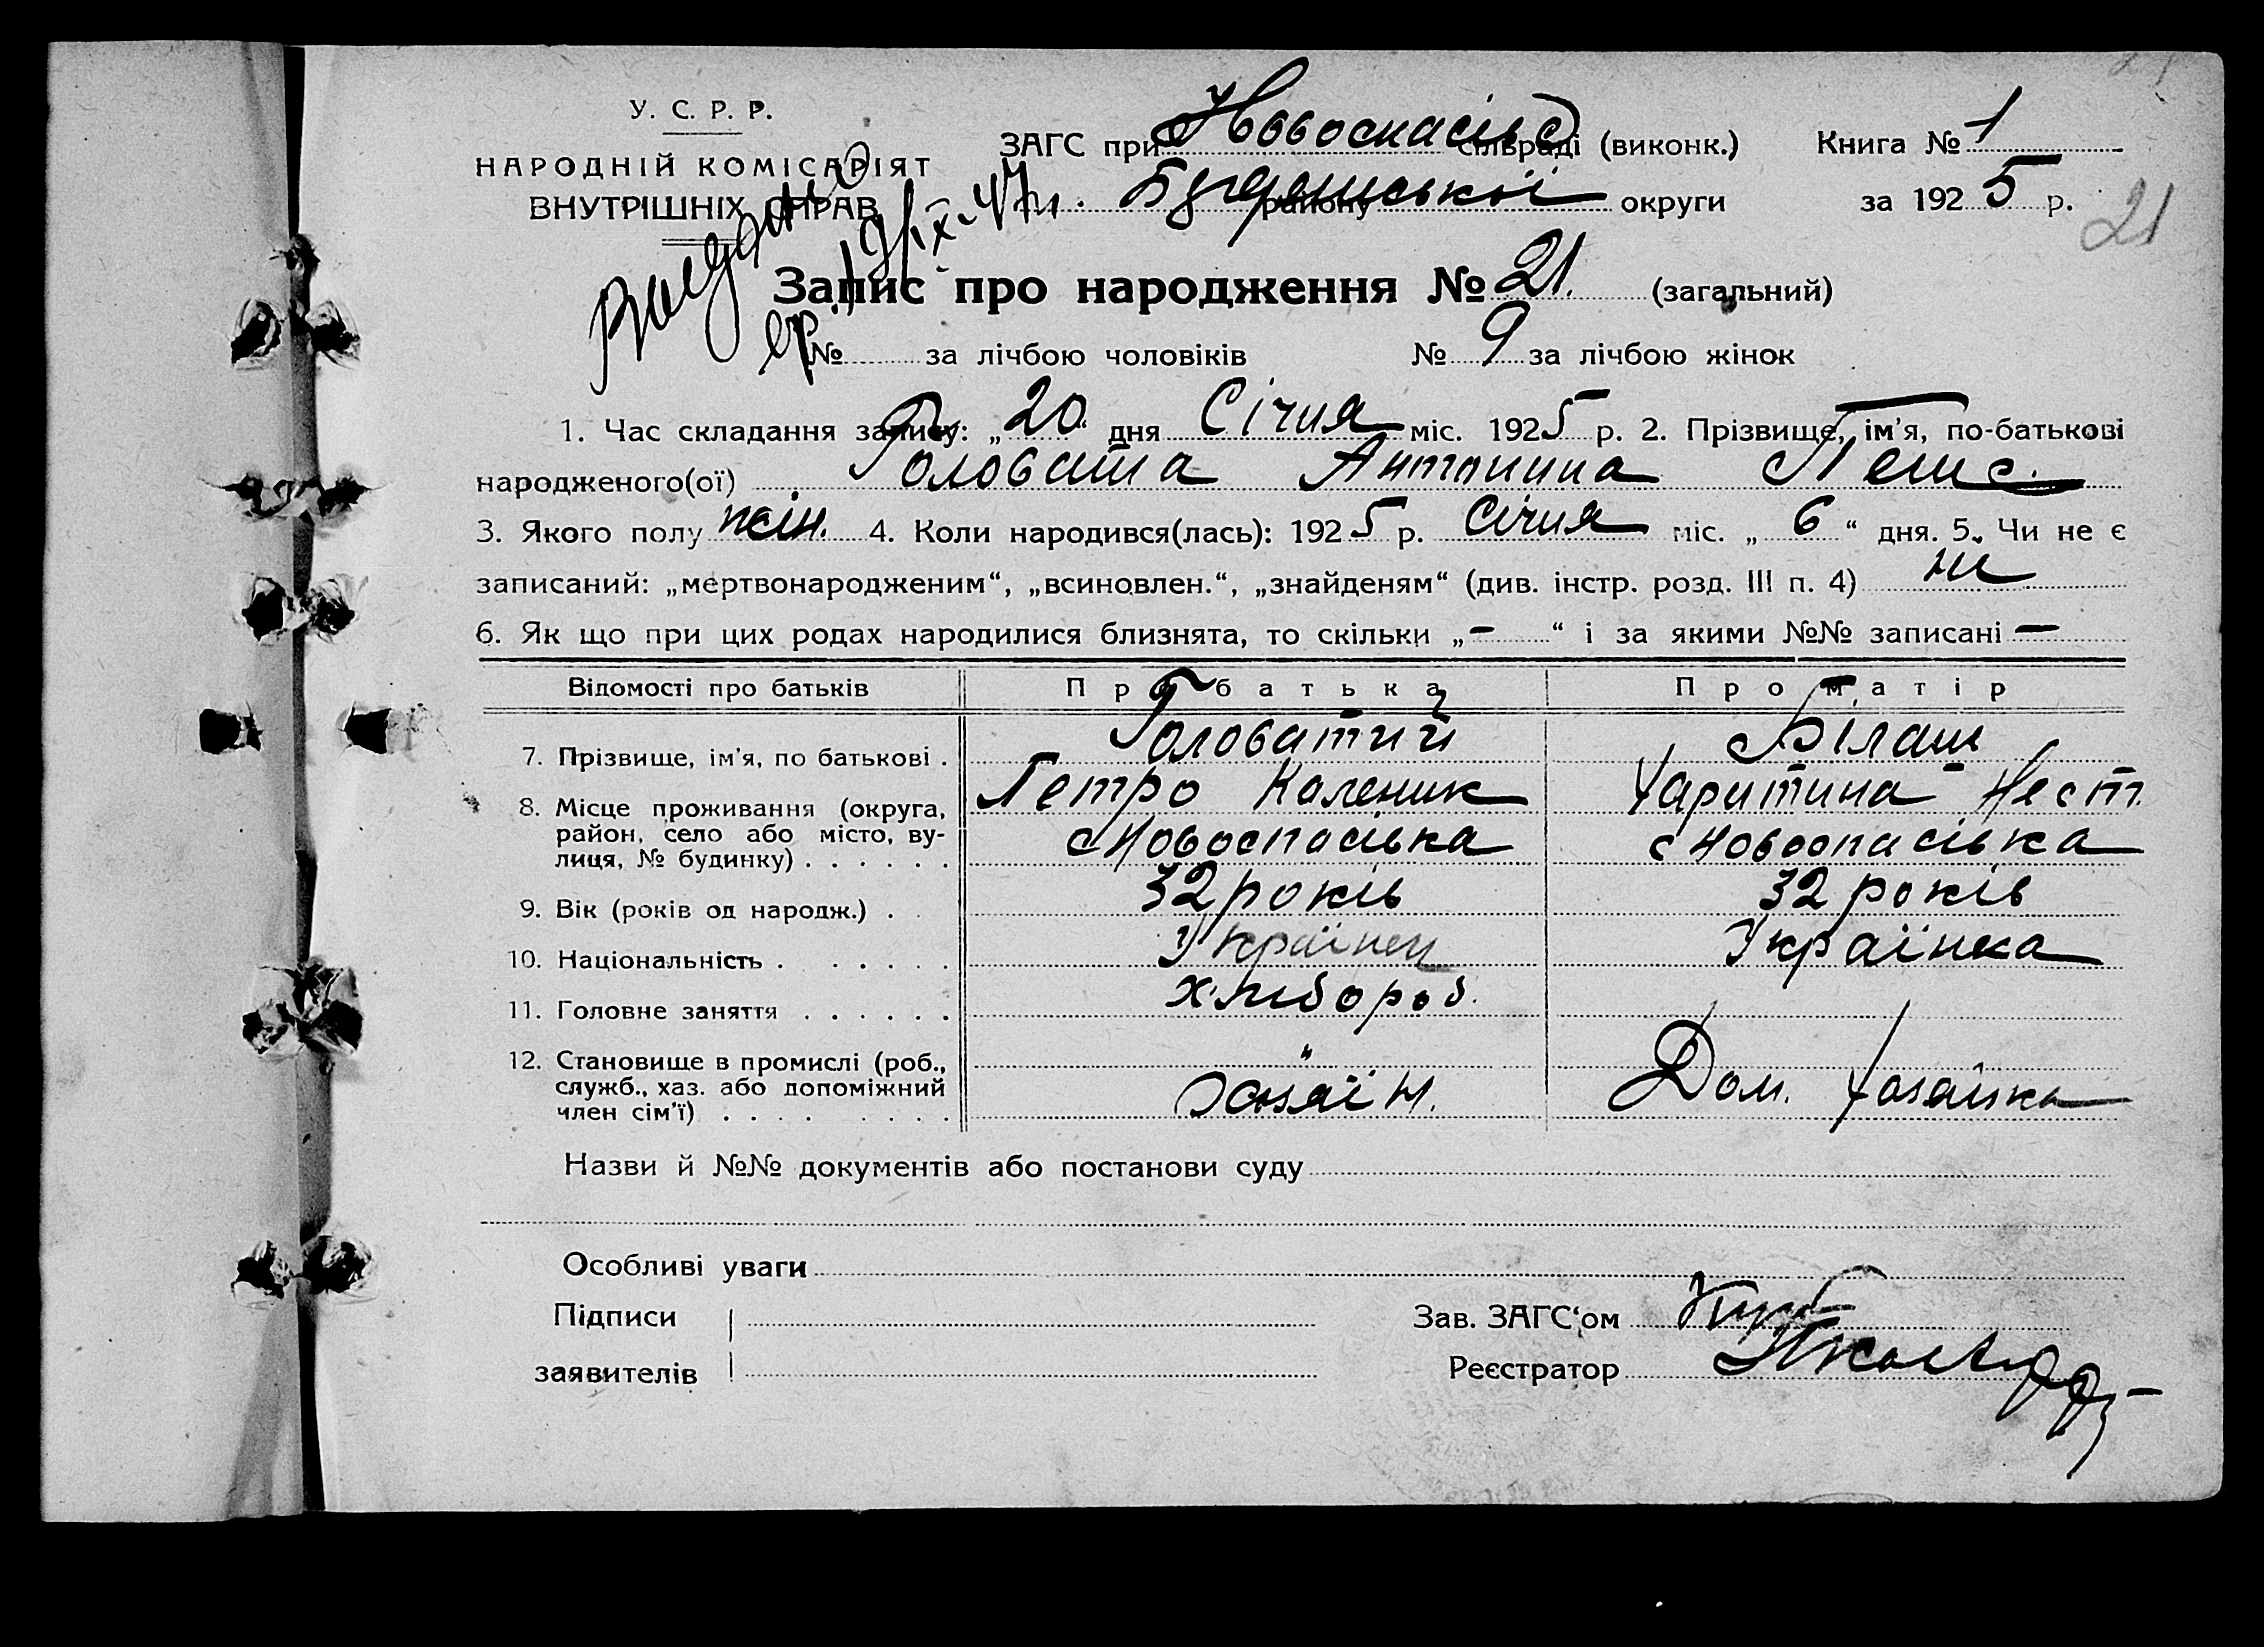 У. С. Р. Р.
НАРОДНІЙ КОМІСАРІЯТ
ВНУТРІШНІХ СПРАВ
ЗАГС при Новоспасівс сільраді (виконк.) Книга № 1
району округи за 1925 р.
21
Запис про народження № 21. (загальний)
№ за лічбою чоловіків № 9 за лічбою жінок
1. Час складання запису: „20“ дня Січня міс. 1925 р. 2. Прізвище, ім'я, по-батькові
народженого(ої) Головата Антонина
3. Якого полу жін. 4. Коли народився(лась): 1925 р. Січня міс. „6“ дня. 5. Чи не є
записаний: „мертвонародженим“, „всиновлен.“, „знайденям“ (див. інстр. розд. III п. 4) ні
6. Як що при цих родах народилися близнята, то скільки „-“ і за якими №№ записані —
Відомості про батьків Про батька Про матір
7. Прізвище, ім'я, по батькові . Головатий Білаш
Петро Каленик Харитина Нест.
8. Місце проживання (округа,
район, село або місто, ву-
лиця, № будинку) . . . . . . с Новоспасівка с Новоспасівка
9. Вік (років од народж.) . . 32 років 32 років
10. Національність . . . . . . Українец Українка
11. Головне заняття . . . . . . Хлібороб.
12. Становище в промислі (роб.,
служб., хаз. або допоміжний
член сім'ї) . . . . . . . . Хазяїн. Дом. Хозяйка
Назви й №№ документів або постанови суду
Особливі уваги
Підписи
заявителів
Зав. ЗАГС‘ом
Реєстратор